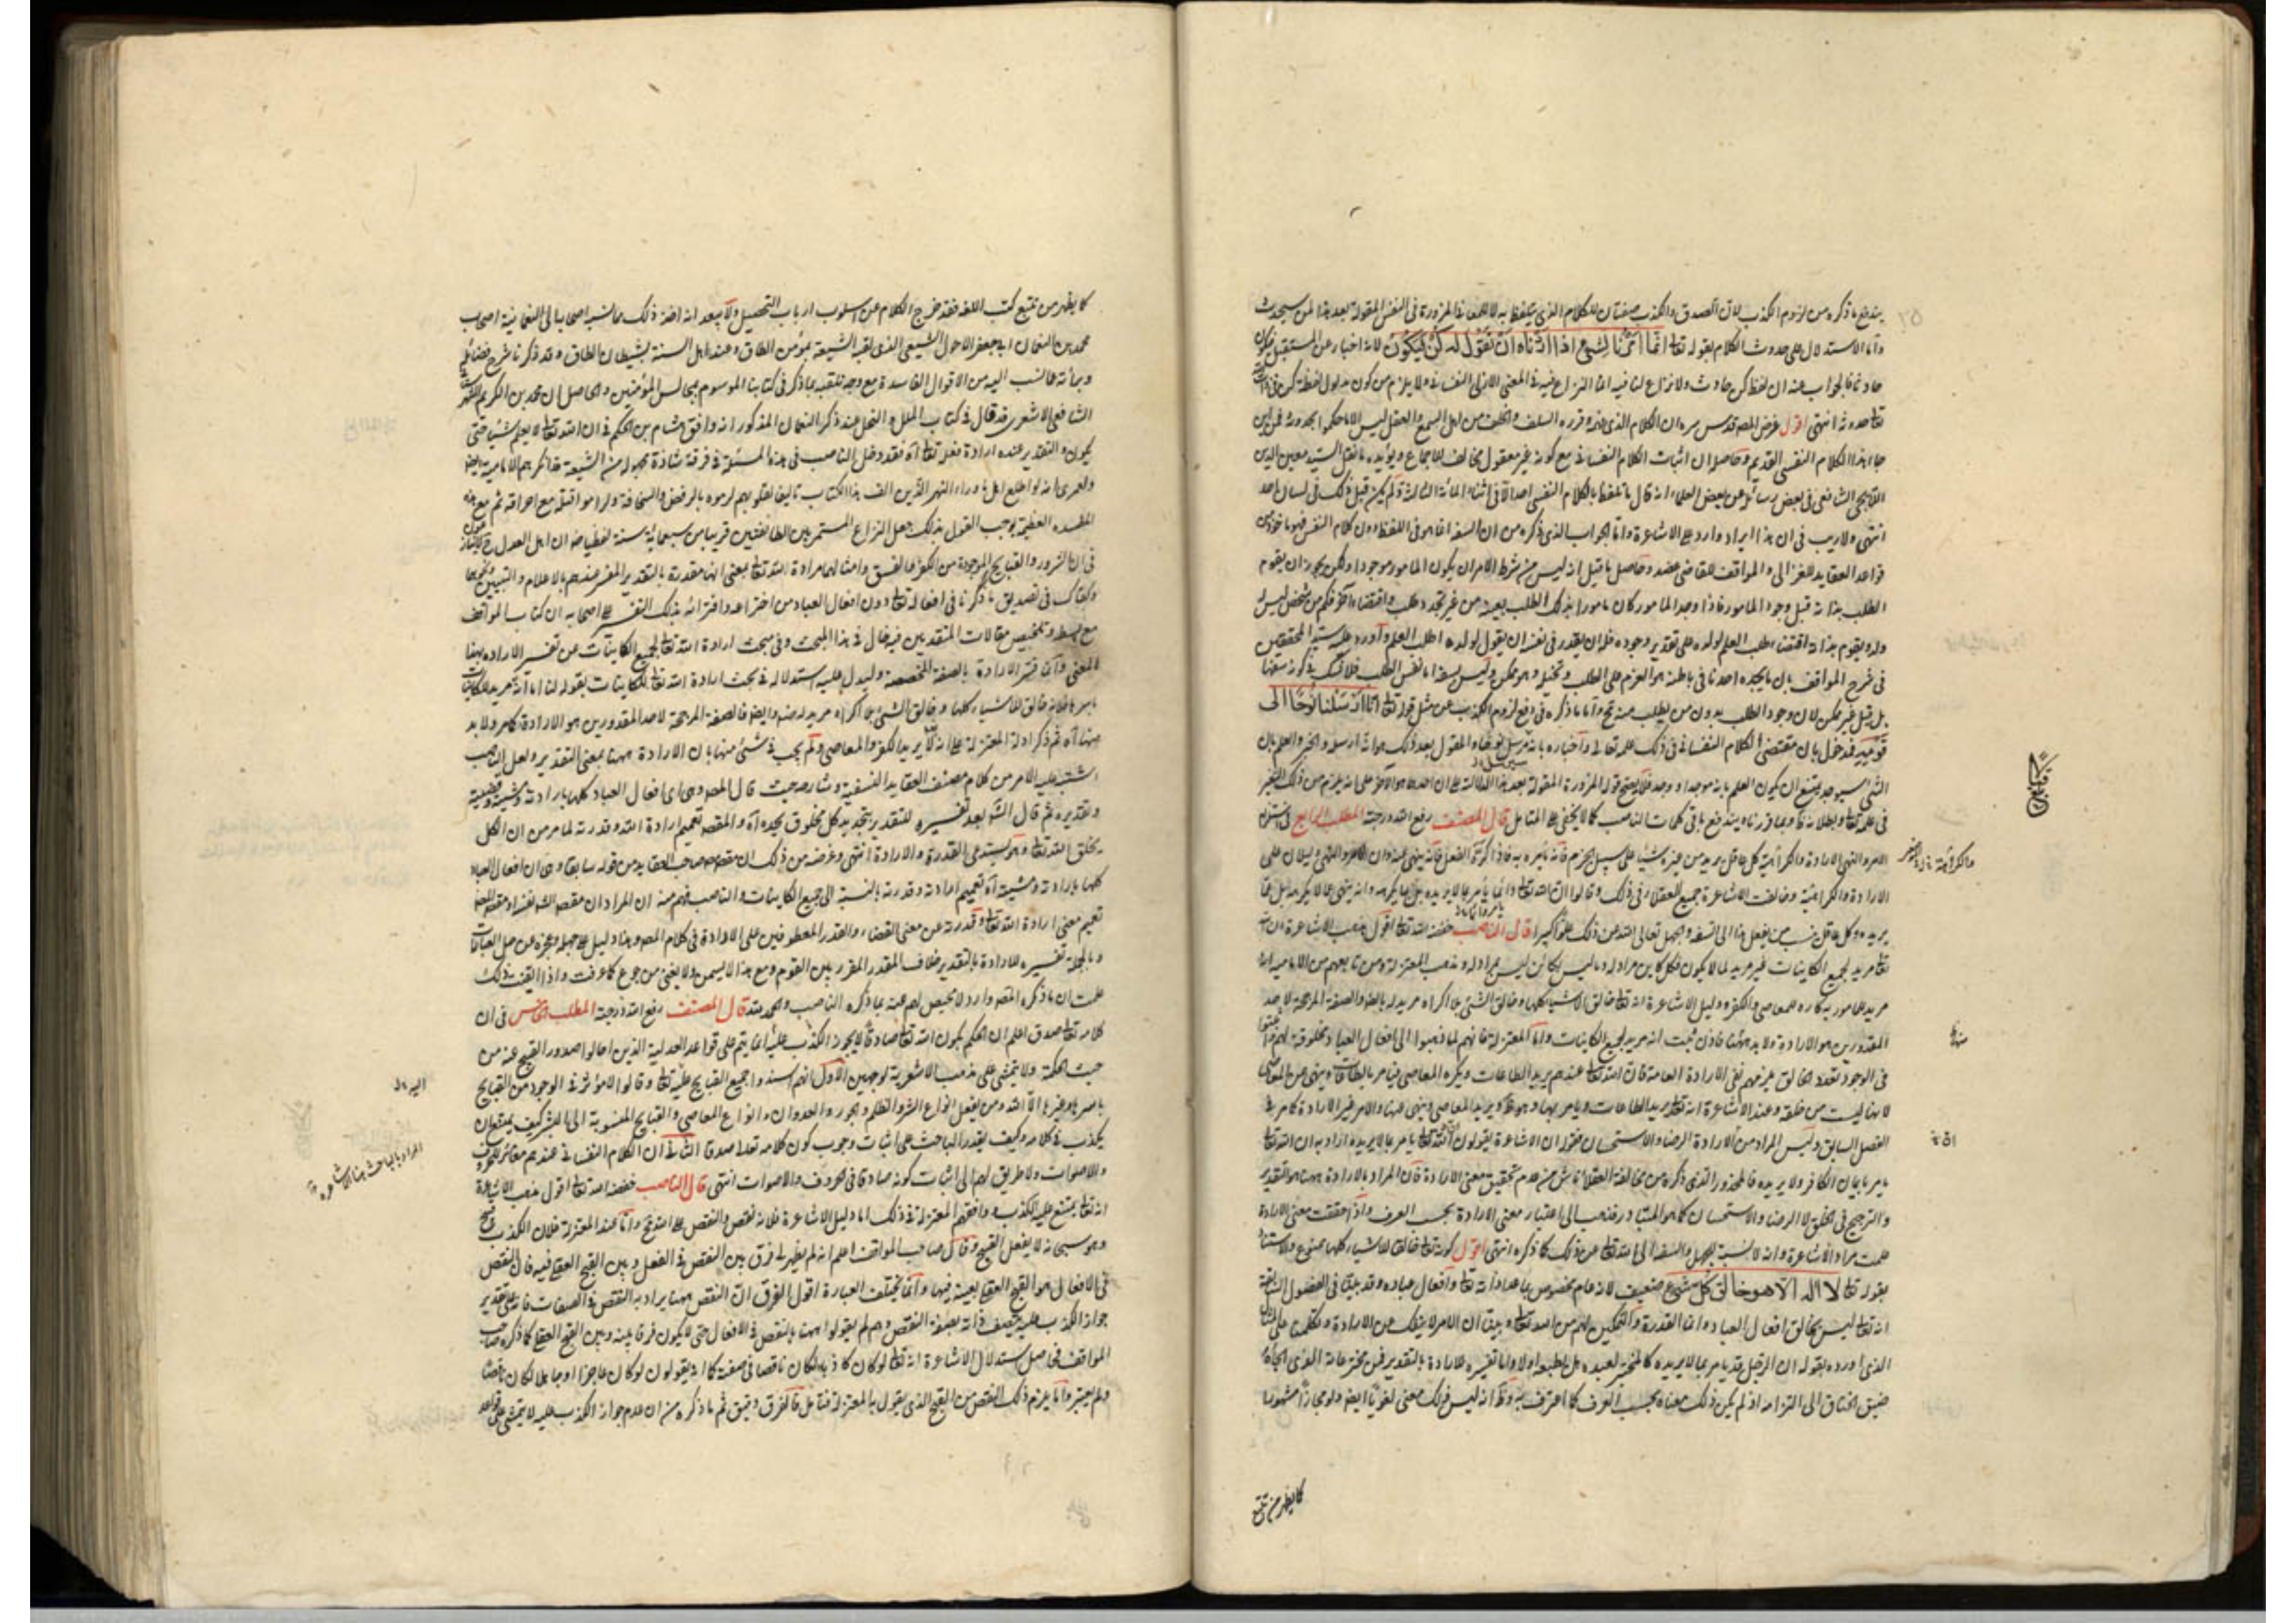 يندفع ما ذكره من لزوم الكذب لان الصدق والكذب صفتان للكلام الذي يتلفظ به لا للمعاني المزورة في النفس المقولة بعد هذا لمن سيحدث
واما الاستدلال على حدوث الكلام بقوله تعا انما امرنا لشيء اذا اردناه ان نقول له كن فيكون لانه اخبار عن المستقبل فيكون
حادثا فالجواب عنه ان لفظ كن حادث ولا نزاع لنا فيه انما النزاع فيه في المعنى الازلي النفساني ولا يلزم من كون مدلول لفظة كن في ذات
تعا حدوثه انتهى اقول غرض المصه قدس سره ان الكلام الذي فهمه وقرره السلف والخلف من اهل السمع والعقل ليس الا ما حكموا بحدوثه فمن اين
جاء هذا الكلام النفسي القديم وحاصله ان اثبات الكلام النفساني مع كونه غير معقول مخالف للاجماع ويؤيده ما نقل السيد معين الدين
الايجي الشافعي في بعض رسائله عن بعض العلماء انه قال ما تلفظ بالكلام النفسي احد الا في اثناء المائة الثالثة ولم يكن قبل ذلك في لسان احد
انتهى ولا ريب في ان هذا ايراد وارد على الاشاعرة واما الجواب الذي ذكره من ان السفه انما هو في اللفظ دون كلام النفس فهو ماخوذ من
قواعد العقايد للغزالي والمواقف للقاضي عضد وحاصله ما قيل انه ليس من شرط الامر ان يكون المامور موجودا ولكن يجوز ان يقوم
الطلب بذاته قبل وجود المامور فاذا وجد المامور كان مامورا بذلك الطلب بعينه من غير تجدد طلب واقتضاء اخر فكم من شخص ليس له
ولد ويقوم بذاته اقتضاء طلب العلم لولده على تقدير وجوده فله ان يقدر في نفسه ان يقول لولده اطلب العلم واورد عليه سيد المحققين
في شرح المواقف بان ما يجده احدنا في باطنه هو العزم على الطلب وتخيله وهو ممكن وليس بسفه اما نفس الطلب فلا شك في كونه سفها
بل قيل غير ممكن لان وجود الطلب بدون من يطلب منه محال واما ما ذكره في دفع لزوم الكذب عن مثل قوله تعا انا ارسلنا نوحا الى
قومه
في علمه تعا وبطلانه وبما قررناه يندفع باقي كلمات الناصب كما لا يخفى على المتامل قال المصنف رفع الله درجته المطلب الرابع في استلزام
الامر والنهي الارادة والكراهة كل عاقل يريد من غيره شيئا على سبيل الجزم فانه يامره به فاذا كره الفعل فانه ينهى عنه وان الامر والنهي دليلان على
الارادة والكراهة وخالفت الاشاعرة جميع العقلاء في ذلك وقالوا ان الله تعا دائما يامر بما لا يريده بل بما يكرهه وانه ينهى عما لا يكرهه بل عما
يريده وكل عاقل ينسب من يفعل هذا الى السفه والجهل تعالى الله عن ذلك علوا كبيرا قال الناصب خفضه الله تعا اقول مذهب الاشاعرة ان الله
تعا مريد لجميع الكاينات غير مريد لما لا يكون فكل كاين مراد له وما ليس بكائن ليس بمراد له ومذهب المعتزلة ومن تابعهم من الامامية انه
مريد للمامور به كاره للمعاصي والكفر ودليل الاشاعرة انه تعا خالق الاشياء كلها وخالق الشيء بلا اكراه مريد له بالضرورة والصفة المرجحة لاحد
المقدورين هو الارادة ولا بد منها فاذن ثبت انه مريد لجميع الكاينات واما المعتزلة فانهم لما ذهبوا الى ان افعال العباد مخلوقة لهم
في الوجود تعدد الخالق غيرهم نفي الارادة العامة فان الله تعا عندهم يريد الطاعات ويكره المعاصي فيامر بالطاعات وينهى عن المعاصي
لانها ليست من خلقه وعند الاشاعرة انه تعا يريد الطاعات ويامر بها وهو يريد المعاصي وينهى عنها والامر غير الارادة كما مر في
الفصل السابق وليس المراد من الارادة الرضا والاستحسان فقوله ان الاشاعرة يقولون ان الله تعا يامر بما لا يريده اراد به ان الله تعا
يامر بايمان الكافر ولا يريده فالمحذور الذي ذكره من مخالفة العقلاء ناش من عدم تحقيق معنى الارادة فان المراد بالارادة ههنا هو التقدير
والترجيح في الخلق لا الرضا والاستحسان كما هو المتبادر فذهب الى اعتبار معنى الارادة بحسب العرف واذا حققت معنى الارادة
علمت مراد الاشاعرة وانه لا نسبة للجهل والسفه الى الله تعا عن ذلك كما ذكره انتهى اقول كونه تعا خالقا للاشياء كلها ممنوع والاستناد
بقوله تعا لا اله الا هو خالق كل شيء ضعيف لانه عام مخصوص بما عدا ذاته تعا وافعال عباده وقد بينا في الفصول السابقة
انه تعا ليس بخالق افعال العباد وانما القدرة والتمكين لهم من الله تعا وبينا ان الامر لا ينفك عن الارادة
الذي اورده بقوله ان الرجل قد يامر بما لا يريده كالمختبر لعبده هل يطيعه اولا واما تفسيره للارادة بالتقدير فمن مخترعاته الذي الجأه
ضيق الخناق الى التزامه اذ لم يكن ذلك معناه بحسب العرف كما اعترف به وظاهر انه ليس ذلك معنى لغويا ايضا ولو مجازا مشهورا
كما يظهر من تتبع
كما يظهر من تتبع كتب اللغة فقد خرج الكلام عن اسلوب ارباب التحصيل ولا يبعد انه اخذ ذلك مما نسب اصحابنا الى النعمانية اصحاب
محمد بن النعمان ابي جعفر الاحول الشيعي الذي لقبه الشيعة بمؤمن الطاق وعند اهل السنة بشيطان الطاق وقد ذكرنا شرح فضائله
وبراءته مما نسب اليه من الاقوال الفاسدة مع وجه تلقبه بما ذكر في كتابنا الموسوم بمجالس المؤمنين والحاصل ان محمد بن الكريم الشهرستاني
الشافعي الاشعري قد قال في كتاب الملل والنحل عند ذكر النعمان المذكور انه وافق هشام بن الحكم في ان الله تعا لا يعلم شيئا حتى
يكون والتقدير عنده ارادة فعله تعا اه فقد دخل الناصب في هذه المسئلة في فرقة شاذة مجهولة من الشيعة قد انكرهم الامامية ايضا
ولعمري انه لو اطلع اهل ما وراء النهر الذين الف هذا الكتاب تاليفا لقلوبهم لرموه بالرفض والسخافة وراموا قتله مع احراقه ثم مع هذه
المفسدة العظيمة يوجب القول بذلك جعل النزاع المستمر بين الطائفتين قريبا من سبعمائة سنة لفظيا
في ان الشرور والقبايح الموجودة من الكفر والفسق وامثالهما مرادة الله تعا بمعنى انها مقدرة بالتقدير المفسر عندهم بالاعلام والتبيين
وكفاك في تصديق ما ذكرنا في افعاله تعا دون افعال العباد من اختراعه وافترائه بذلك التفسير على اصحابه ان كتاب المواقف
مع بسطه وتلخيص مقالات المتقدمين فيه خال في هذا المبحث وفي مبحث ارادة الله تعا لجميع الكاينات عن تفسير الارادة بهذا
المعنى وانما فسر الارادة بالصفة المخصصة وليدل عليه استدلاله في بحث ارادة الله تعا للكاينات بقوله لنا اما انه مريد للكاينات
باسرها فلانه خالق للاشياء كلها وخالق الشيء بلا اكراه مريد له ضرورة وايضا فالصفة المرجحة لاحد المقدورين هو الارادة كما مر ولا بد
منها اه ثم ذكر ادلة المعتزلة على انه لا يريد الكفر والمعاصي ولم يجب في شيء منها بان الارادة ههنا بمعنى التقدير ولعل الناصب
اشتبه عليه الامر من كلام مصنف العقايد النسفية وشارحه حيث قال المصه وهي اي افعال العباد كلها بارادته ومشيته وقضيته
وتقديره ثم قال الشه بعد تفسيره للتقدير بتحديد كل مخلوق بحده اه والمقصه تعميم ارادة الله وقدرته لما مر من ان الكل
بخلق الله تعا وهو يستدعي القدرة والارادة انتهى وغرضه من ذلك ان مقصود صاحب العقايد من قوله سابقا وهي ان افعال العباد
كلها بارادته ومشيته اه تعميم ارادته وقدرته بالنسبة الى جميع الكاينات والناصب فهم منه ان المراد ان مقصه الشه
تعميم معنى ارادة الله تعا وقدرته عن معنى القضاء والقدر المعطوفين على الارادة في كلام المصه وهذا دليل على جهله وعجزه عن حل العبارات
وبالجملة تفسيره للارادة بالتقدير خلاف المقدر المقرر بين القوم ومع هذا لا يسمن ولا يغني من جوع كما عرفت واذا اتقنت ذلك
علمت ان ما ذكره المصه وارد لا محيص لهم عنه بما ذكره الناصب والحمد لله قال المصنف رفع الله درجته المطلب الخامس في ان
كلامه تعا صدق اعلم ان الحكم بكون الله تعا صادقا لا يجوز الكذب عليه انما يتم على قواعد العدلية الذين احالوا صدور القبيح عنه من
حيث الحكمة ولا يتمشى على مذهب الاشعرية لوجهين الاول انهم اسندوا جميع القبايح اليه تعا وقالوا لا مؤثر في الوجود من القبايح
باسرها وغيرها الا الله ومن يفعل انواع الشر والظلم والجور والعدوان وانواع المعاصي والقبايح المنسوبة الى البشر كيف يمتنع ان
يكذب في كلامه وكيف يقدر الباحث على اثبات وجوب كون كلامه تعا صدقا الثاني ان الكلام النفساني عندهم مغاير للحروف
والاصوات ولا طريق لهم الى اثبات كونه صادقا في الحروف والاصوات انتهى قال الناصب خفضه الله تعا اقول مذهب الاشاعرة
انه تعا يمتنع عليه الكذب ووافقهم المعتزلة في ذلك اما دليل الاشاعرة فلانه نقص والنقص على الله تعا محال واما عند المعتزلة فلان الكذب قبيح
وهو سبحانه لا يفعل القبيح وقال صاحب المواقف اعلم انه لم يظهر لي فرق بين النقص في الفعل وبين القبح العقلي فيه فان النقص
في الافعال هو القبح العقلي بعينه فيها وانما يختلف العبارة اقول الفرق ان النقص ههنا يراد به النقص في الصفات فانه على تقدير
جواز الكذب عليه يتصف ذاته بصفة النقص وهم لم يقولوا ههنا بالنقص في الافعال حتى لا يكون فرقا بينه وبين القبح العقلي كما ذكره صاحب
المواقف فحاصل استدلال الاشاعرة انه تعا لو كان كاذبا لكان ناقصا في صفته كما انهم يقولون لو كان عاجزا او جاهلا لكان ناقصا
ولم يعتبروا انما يلزم ذلك النقص من القبح الذي يقول به المعتزلة فتامل فالفرق دقيق ثم ما ذكره من ان عدم جواز الكذب عليه لا يتمشى على قواعد
المراد بالباحث هنا الاشاعرة